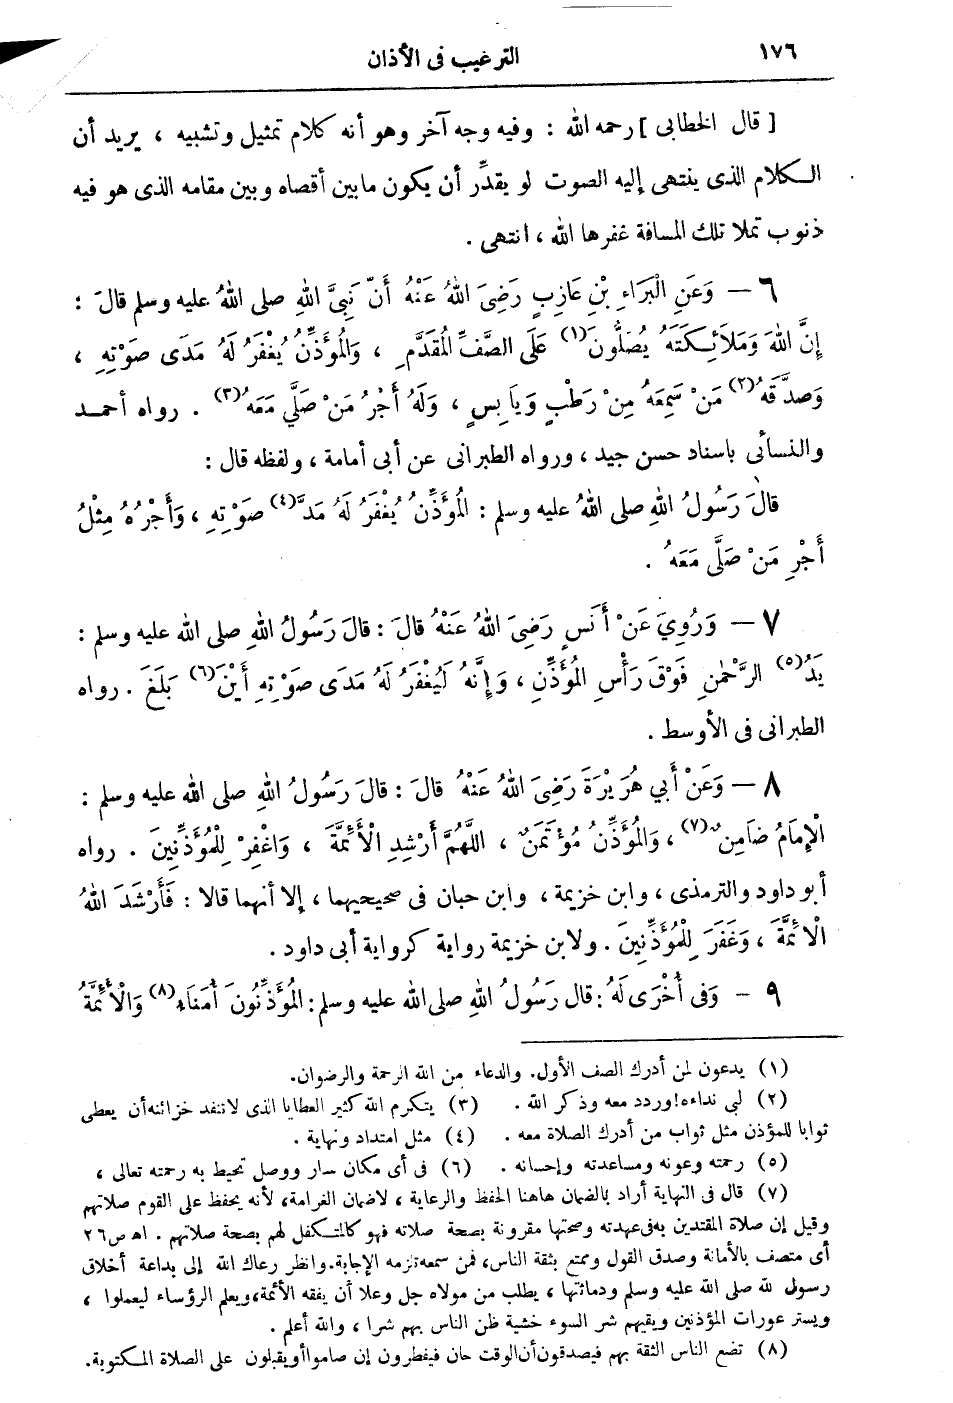 ١٧٦ الترغيب فى الأذان
[ قال الخطابى ] رحمه الله : وفيه وجه آخر وهو أنه كلام تمثيل وتشبيه ، يريد أن
الكلام الذى ينتهى إليه الصوت لو يقدِّر أن يكون مابين أقصاه وبين مقامه الذى هو فيه
ذنوب تملا تلك المسافة غفرها الله ، انتهى .
٦ — وَعَنِ الْبَرَاءِ بْنِ عَازِبٍ رَضِىَ اللهُ عَنْهُ أَنَّ نَبِىَّ اللهِ صلى اللهُ عليه وسلم قالَ :
إِنَّ اللهَ وَمَلَائِكَتَهُ يُصَلُّونَ(١) عَلَى الصَّفِّ الْمُقَدَّمِ ، وَالْمُؤَذِّنُ يُغْفَرُ لَهُ مَدَى صَوْتِهِ ،
وَصَدَّقَهُ(٢) مَنْ سَمِعَهُ مِنْ رَطْبٍ وَيَابِسٍ ، وَلَهُ أَجْرُ مَنْ صَلَّى مَعَهُ(٣) . رواه أحمد
والنسأى باسناد حسن جيد ، ورواه الطبرانى عن أبى أمامة ، ولفظه قال :
قالَ رَسُولُ اللهِ صلى اللهُ عليه وسلم : الْمُؤَذِّنُ يُغْفَرُ لَهُ مَدَّ(٤) صَوْتِهِ ، وَأَجْرُهُ مِثْلُ
أَجْرِ مَنْ صَلَّى مَعَهُ .
٧ — وَرُوِيَ عَنْ أَنَسٍ رَضِىَ اللهُ عَنْهُ قالَ : قالَ رَسُولُ اللهِ صلى الله عليه وسلم :
يَدُ(٥) الرَّحْمٰنِ فَوْقَ رَأْسِ الْمُؤَذِّنِ ، وَإِنَّهُ لَيُغْفَرُ لَهُ مَدَى صَوْتِهِ أَيْنَ(٦) بَلَغَ . رواه
الطبرانى فى الأوسط .
٨ — وَعَنْ أَبي هُرَيْرَةَ رَضِىَ اللهُ عَنْهُ قالَ : قالَ رَسُولُ اللهِ صلى الله عليه وسلم :
الْإِمَامُ ضَامِنٌ(٧) ، وَالْمُؤَذِّنُ مُؤْتَمَنٌ ، اللَّهُمَّ أَرْشِدِ الْأَئِمَّةَ ، وَاغْفِرْ لِلْمُؤَذِّنِينَ . رواه
أبو داود والترمذى ، وابن خزيمة ، وابن حبان فى صحيحيهما ، إلا أنهما قالا : فَأَرْشَدَ اللهُ
الْأَئِمَّةَ ، وَغَفَرَ لِلْمُؤَذِّنِينَ . ولابن خزيمة رواية كرواية أبى داود .
٩ - وَفى أُخْرَى لَهُ : قال رَسُولُ اللهِ صلى الله عليه وسلم : الْمُؤَذِّنُونَ أُمَنَاءُ(٨) وَالْأَئِمَّةُ
(١) يدعون لمن أدرك الصف الأول. والدعاء من الله الرحمة والرضوان.
(٢) لبى نداءه! وردد معه وذكر الله . (٣) يتكرم الله كثير العطايا الذى لاتنفد خزائنه أن يعطى
ثوابا للمؤذن مثل ثواب من أدرك الصلاة معه . (٤) مثل امتداد ونهاية .
(٥) رحمته وعونه ومساعدته وإحسانه . (٦) فى أى مكان سار ووصل تحيط به رحمته تعالى ،
(٧) قال فى النهاية أراد بالضمان هاهنا الحفظ والرعاية ، لاضمان الغرامة، لأنه يحفظ على القوم صلاتهم
وقيل إن صلاة المقتدين به فى عهدته وصحتها مقرونة بصحة صلاته فهو كالمتكفل لهم بصحة صلاتهم . اه ص٢٦
أى متصف بالأمانة وصدق القول وممتع بثقة الناس، فمن سمعه تلزمه الإجابة. وانظر رعاك الله إلى بداعة أخلاق
رسول لله صلى الله عليه وسلم ودماثتها ، يطلب من مولاه جل وعلا أن يفقه الأئمة، ويعلم الرؤساء ليعملوا ،
ويستر عورات المؤذنين ويقيهم شر السوء خشية ظن الناس بهم شرا ، والله أعلم .
(٨) تضع الناس الثقة بهم فيصدقون أن الوقت حان فيفطرون إن صاموا أو يقبلون على الصلاة المكتوبة.